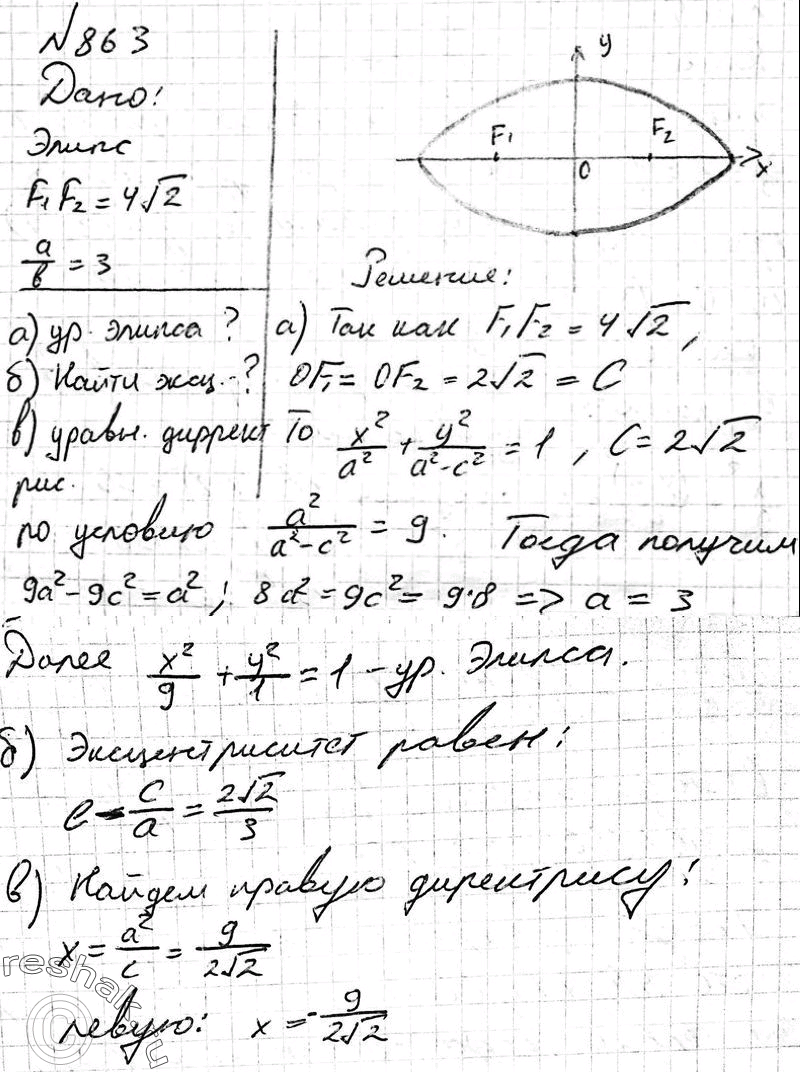 №863
Дано:
Элипс
F₁F₂ = 4√2
a/b = 3
y
F₁ F₂
O x
Решение:
а) ур. элипса?
б) Найти эксц.-?
в) уравн. диррект
рис.
а) Так как F₁F₂ = 4√2,
OF₁ = OF₂ = 2√2 = C
То x²/a² + y²/(a²-c²) = 1, C = 2√2
по условию a²/(a²-c²) = 9. Тогда получим
9a²-9c²=a²; 8a²=9c²=9·8 => a = 3
Далее x²/9 + y²/1 = 1 - ур. Элипса.
б) Эксцентриситет равен:
e = c/a = 2√2/3
в) Найдем правую директрису:
x = a²/c = 9/2√2
левую: x = -9/2√2
reshak.ru